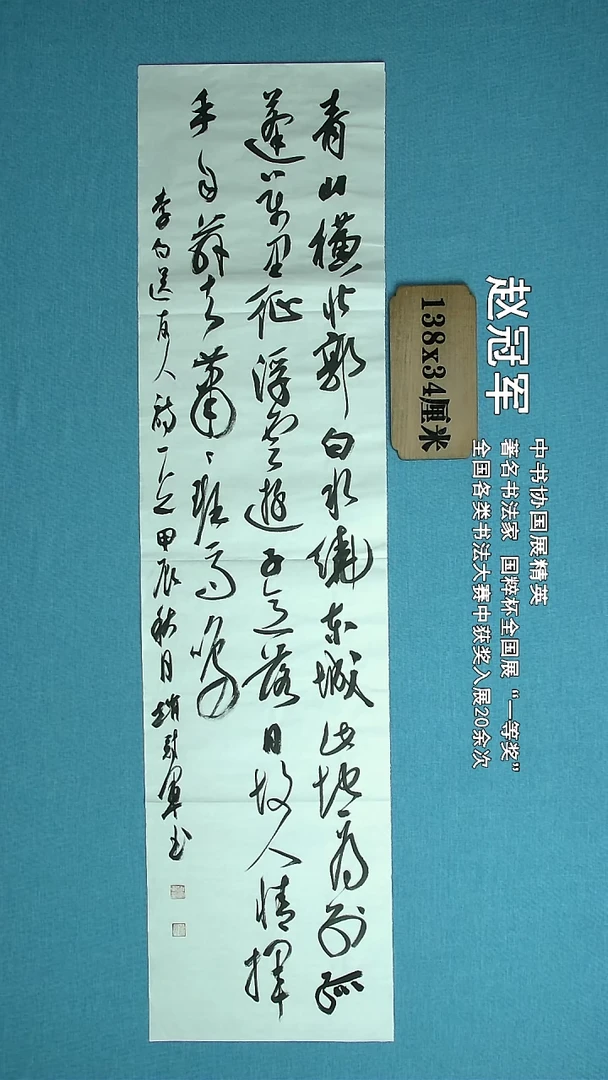 青山横北郭白水繞东城此地一为别孤
蓬万里征浮云遊子意落日故人情挥
手自兹去萧〻班马鸣
李白送友人诗一首甲辰秋月赵冠军书
138x34厘米
赵冠军
中书协国展精英
著名书法家 国粹杯全国展 “一等奖”
全国各类书法大赛中获奖入展20余次